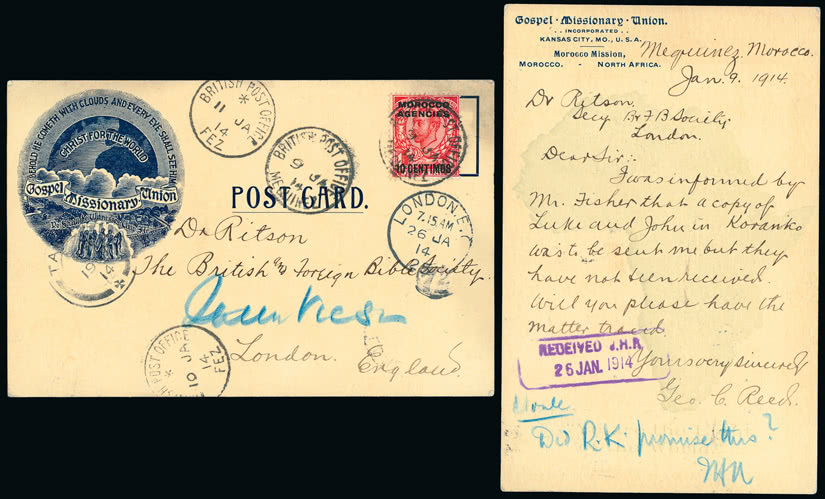 BEHOLD HE COMETH WITH CLOUDS AND EVERY EYE SHALL SEE HIM
CHRIST FOR THE WORLD
Gospel Missionary Union
BRITISH POST OFFICE
*
11 JA
14
FEZ
BRITISH POST OFFICE
9 JA
14
MOROCCO
AGENCIES
10 CENTIMOS
POST CARD.
LONDON. E.C
7.15 AM
26 JA
14
Dr Ritson
The British and Foreign Bible Society
London.
England.
TA
19
14
POST OFFICE
10 JA
14
FEZ
Gospel · Missionary · Union.
INCORPORATED
KANSAS CITY, MO., U. S. A.
Morocco Mission,
MOROCCO. - NORTH AFRICA.
Mequinez, Morocco.
Jan. 9. 1914.
Dr Ritson,
Secy Br F B Society
London.
Dear Sir:-
I was informed by
Mr. Fisher that a copy of
Luke and John in Koranko
was to be sent me but they
have not been received.
Will you please have the
matter traced
Yours very sincerely
Geo. C. Reed.
RECEIVED J.H.R.
26 JAN. 1914
Did R.K. promise this?